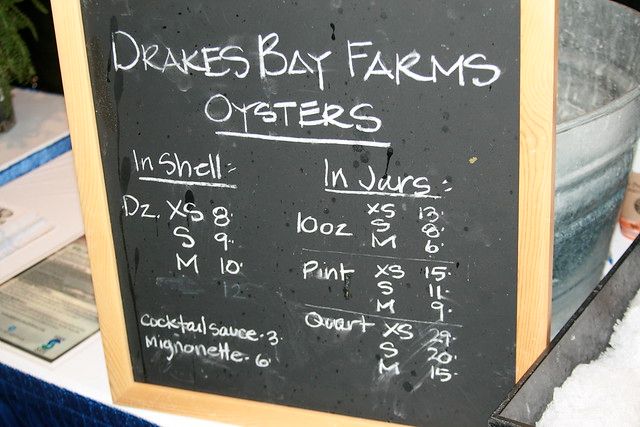 DRAKES BAY FARMS
OYSTERS
In Shell:
Dz. XS 8.
S 9.
M 10.
12.
cocktail sauce. 3
mignonette. 6
In Jars:
10oz XS 13.
S 8.
M 6.
Pint XS 15.
S 11.
M 9.
Quart XS 29.
S 20.
M 15.